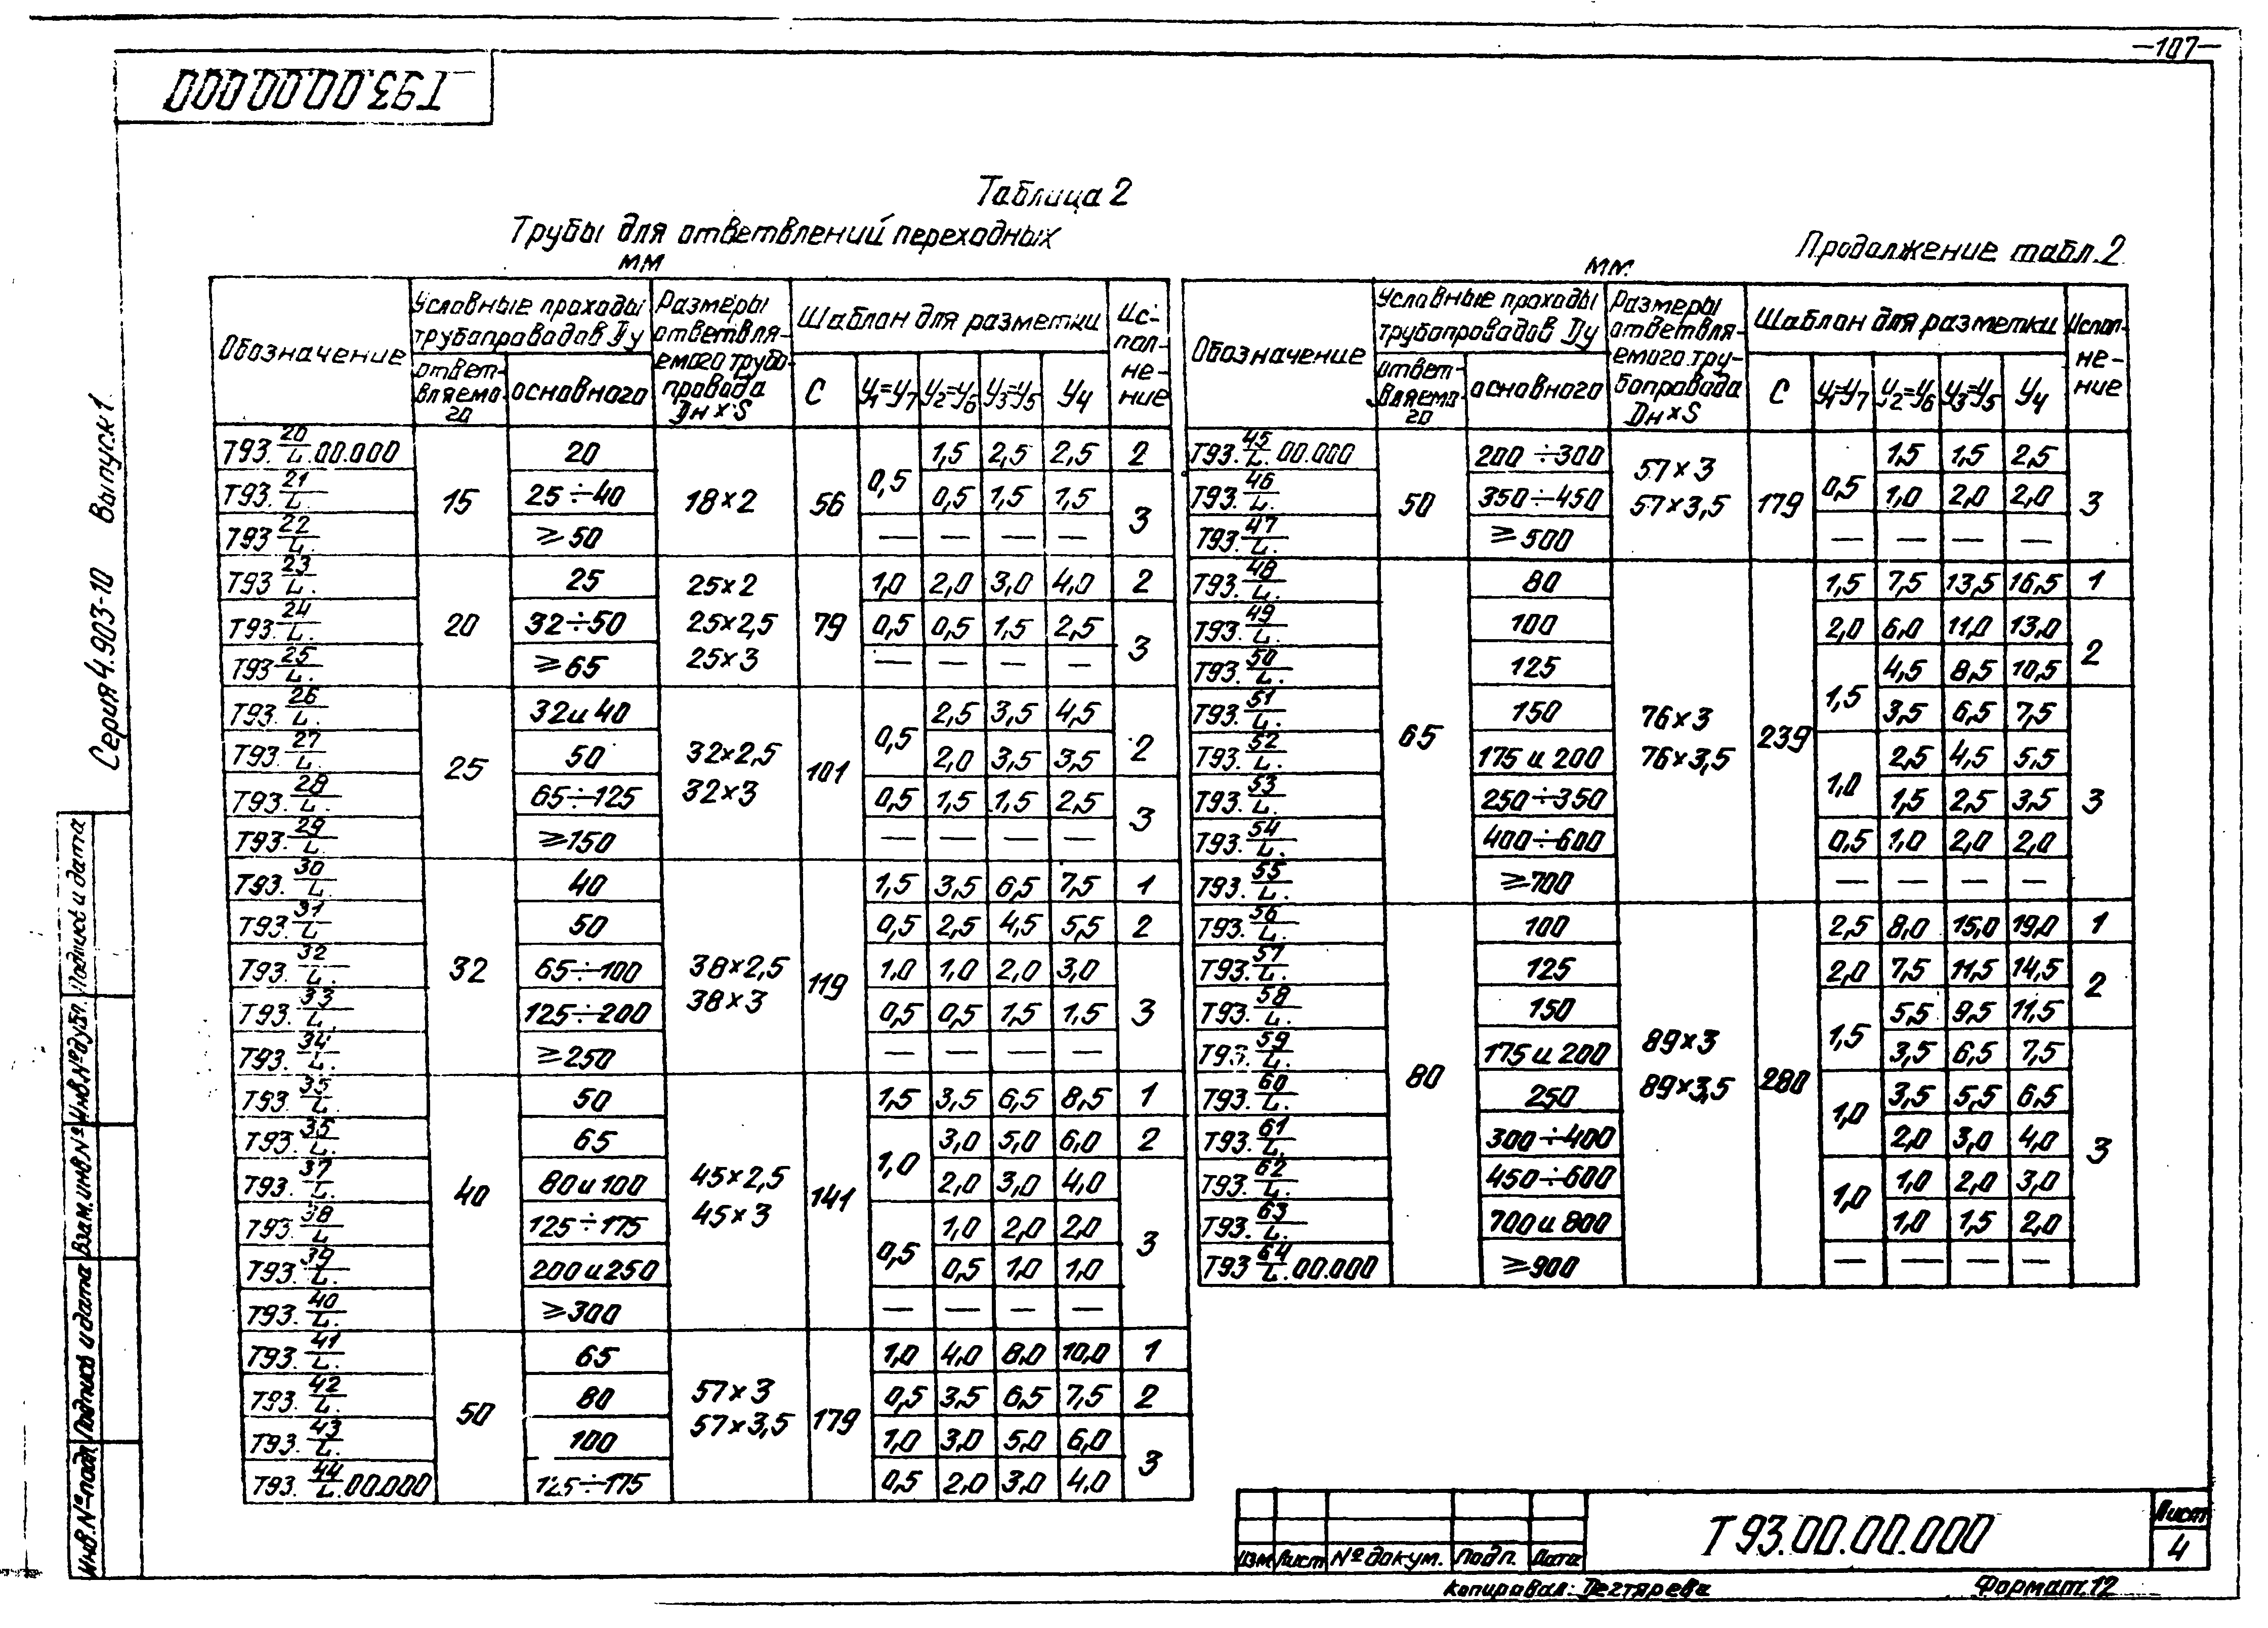 —107—
Т93.00.00.000
Серия 4.903-10 Выпуск 1
Таблица 2
Трубы для ответвлений переходных
мм
Обозначение | Условные проходы трубопроводов Ду: ответвляемого | основного | Размеры ответвляемого трубопровода Дн×S | Шаблон для разметки: С | У1=У7 | У2=У6 | У3=У5 | У4 | Исполнение
Т93.20/L.00.000 | 15 | 20 | 18×2 | 56 | 0,5 | 1,5 | 2,5 | 2,5 | 2
Т93.21/L. | 25÷40 | 0,5 | 1,5 | 1,5 | 3
Т93 22/L. | ≥50 | — | — | — | —
Т93 23/L. | 20 | 25 | 25×2 25×2,5 25×3 | 79 | 1,0 | 2,0 | 3,0 | 4,0 | 2
Т93.24/L. | 32÷50 | 0,5 | 0,5 | 1,5 | 2,5 | 3
Т93 25/L. | ≥65 | — | — | — | —
Т93.26/L. | 25 | 32 и 40 | 32×2,5 32×3 | 101 | 0,5 | 2,5 | 3,5 | 4,5 | 2
Т93.27/L. | 50 | 2,0 | 3,5 | 3,5
Т93.28/L. | 65÷125 | 0,5 | 1,5 | 1,5 | 2,5 | 3
Т93.29/L. | ≥150 | — | — | — | —
Т93.30/L. | 32 | 40 | 38×2,5 38×3 | 119 | 1,5 | 3,5 | 6,5 | 7,5 | 1
Т93.31/L | 50 | 0,5 | 2,5 | 4,5 | 5,5 | 2
Т93.32/L. | 65÷100 | 1,0 | 1,0 | 2,0 | 3,0 | 3
Т93.33/L. | 125÷200 | 0,5 | 0,5 | 1,5 | 1,5
Т93.34/L. | ≥250 | — | — | — | —
Т93.35/L. | 40 | 50 | 45×2,5 45×3 | 141 | 1,5 | 3,5 | 6,5 | 8,5 | 1
Т93.35/L. | 65 | 1,0 | 3,0 | 5,0 | 6,0 | 2
Т93.37/L. | 80 и 100 | 2,0 | 3,0 | 4,0 | 3
Т93.38/L | 125÷175 | 0,5 | 1,0 | 2,0 | 2,0
Т93.39/L. | 200 и 250 | 0,5 | 1,0 | 1,0
Т93.40/L. | ≥300 | — | — | — | —
Т93.41/L. | 50 | 65 | 57×3 57×3,5 | 179 | 1,0 | 4,0 | 8,0 | 10,0 | 1
Т93.42/L. | 80 | 0,5 | 3,5 | 6,5 | 7,5 | 2
Т93.43/L. | 100 | 1,0 | 3,0 | 5,0 | 6,0 | 3
Т93.44/L.00.000 | 125÷175 | 0,5 | 2,0 | 3,0 | 4,0
Продолжение табл.2
мм.
Обозначение | Условные проходы трубопроводов Ду: ответвляемого | основного | Размеры ответвляемого трубопровода Дн×S | Шаблон для разметки: С | У1=У7 | У2=У6 | У3=У5 | У4 | Исполнение
Т93.45/L.00.000 | 50 | 200÷300 | 57×3 57×3,5 | 179 | 0,5 | 1,5 | 1,5 | 2,5 | 3
Т93.46/L. | 350÷450 | 1,0 | 2,0 | 2,0
Т93.47/L. | ≥500 | — | — | — | —
Т93.48/L. | 65 | 80 | 76×3 76×3,5 | 239 | 1,5 | 7,5 | 13,5 | 16,5 | 1
Т93.49/L. | 100 | 2,0 | 6,0 | 11,0 | 13,0 | 2
Т93.50/L. | 125 | 1,5 | 4,5 | 8,5 | 10,5
Т93.51/L. | 150 | 3,5 | 6,5 | 7,5 | 3
Т93.52/L. | 175 и 200 | 1,0 | 2,5 | 4,5 | 5,5
Т93.53/L. | 250÷350 | 1,5 | 2,5 | 3,5
Т93.54/L. | 400÷600 | 0,5 | 1,0 | 2,0 | 2,0
Т93.55/L. | ≥700 | — | — | — | —
Т93.56/L. | 80 | 100 | 89×3 89×3,5 | 280 | 2,5 | 8,0 | 15,0 | 19,0 | 1
Т93.57/L. | 125 | 2,0 | 7,5 | 11,5 | 14,5 | 2
Т93.58/L. | 150 | 1,5 | 5,5 | 9,5 | 11,5
Т93.59/L. | 175 и 200 | 3,5 | 6,5 | 7,5 | 3
Т93.60/L. | 250 | 1,0 | 3,5 | 5,5 | 6,5
Т93.61/L. | 300÷400 | 2,0 | 3,0 | 4,0
Т93.62/L. | 450÷600 | 1,0 | 1,0 | 2,0 | 3,0
Т93.63/L. | 700 и 800 | 1,0 | 1,5 | 2,0
Т93 64/L.00.000 | ≥900 | — | — | — | —
Инв.№ подл
Подпись и дата
Взам.инв№
Инв.№ дубл.
Подпись и дата
Изм Лист № докум. Подп. Дата
Т93.00.00.000
Лист
4
Копировал: Дегтярева
Формат 12